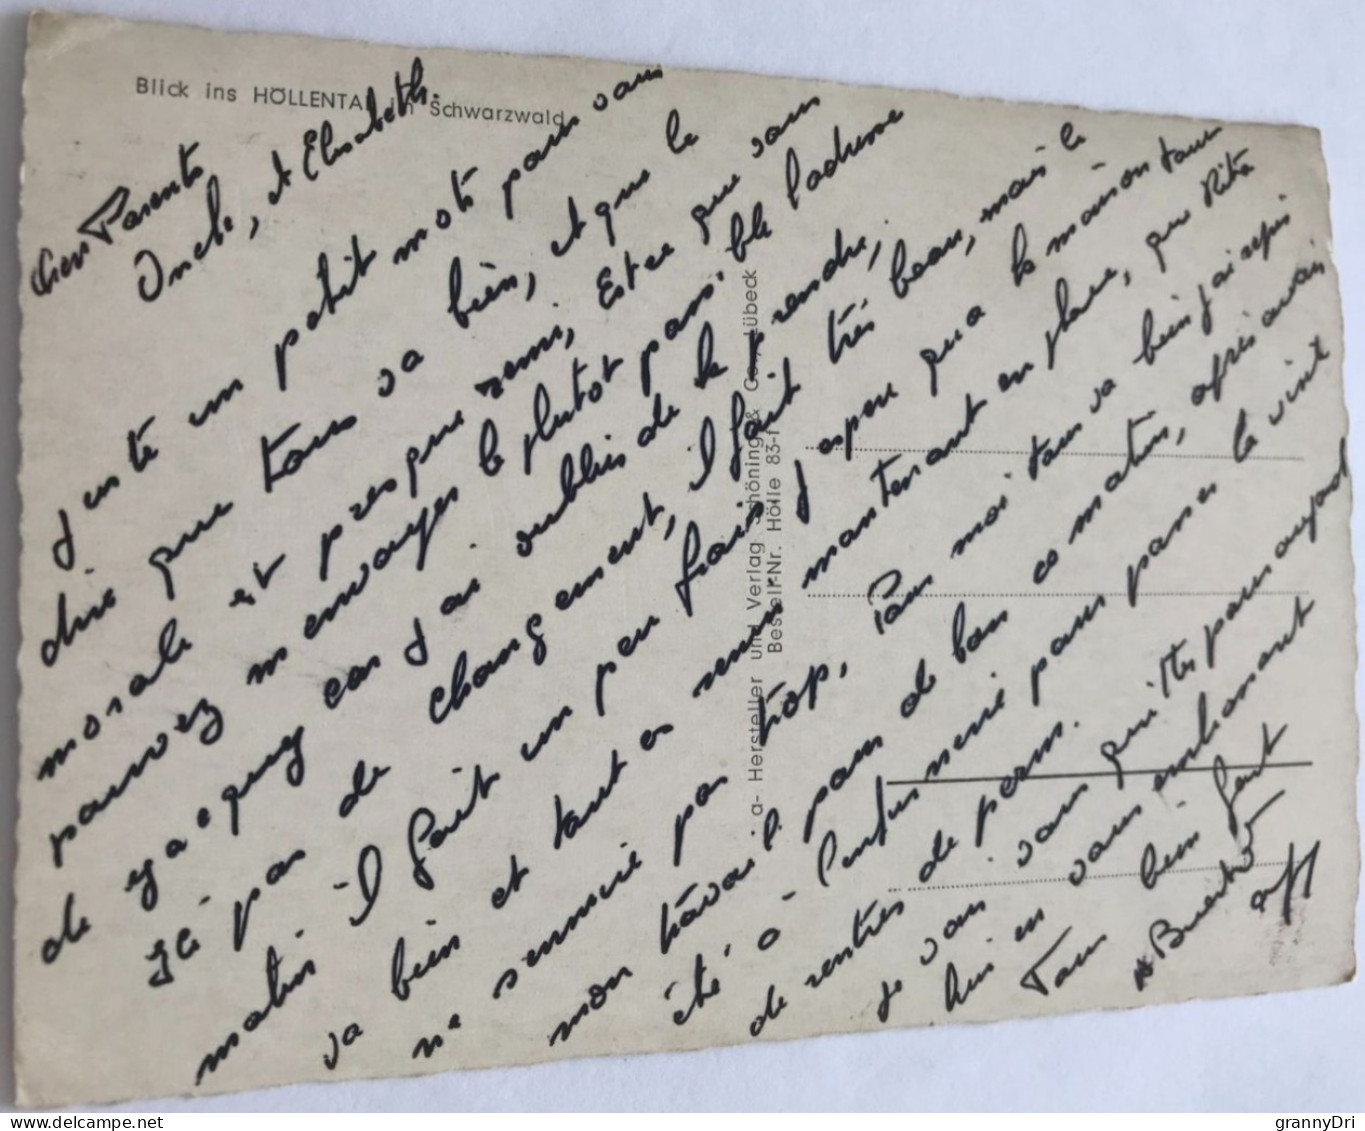 Blick ins HÖLLENTAL im Schwarzwald
Chers Parents
Oncle, et Elisabeth.
Juste un petit mots pour vous
dire que tous va bien, et que le
morale et presque remi, Est ce que vous
pouvez m envoyer le plutot possible l'adresse
de car j'ai oublier de le prendre,
pas de changement, il fait très beau, mais le
matin il fait un peu frais, J espere qu a la maison tous
va bien et tout es remi maintenant en place, que Rita
ne s ennuie pas trop, Pour moi tous va bien j ai repri
mon travail pour de bon ce matin, après avoir
été a l infirmerie pour passer le vint
de rentrés de perm.
Je vais vous quittes pour aujourd
hui en vous embrassant
Tous bien fort
a- Hersteller und Verlag Schöning & Co., Lübeck
Bestell-Nr. Hölle 83-f
grannyDri